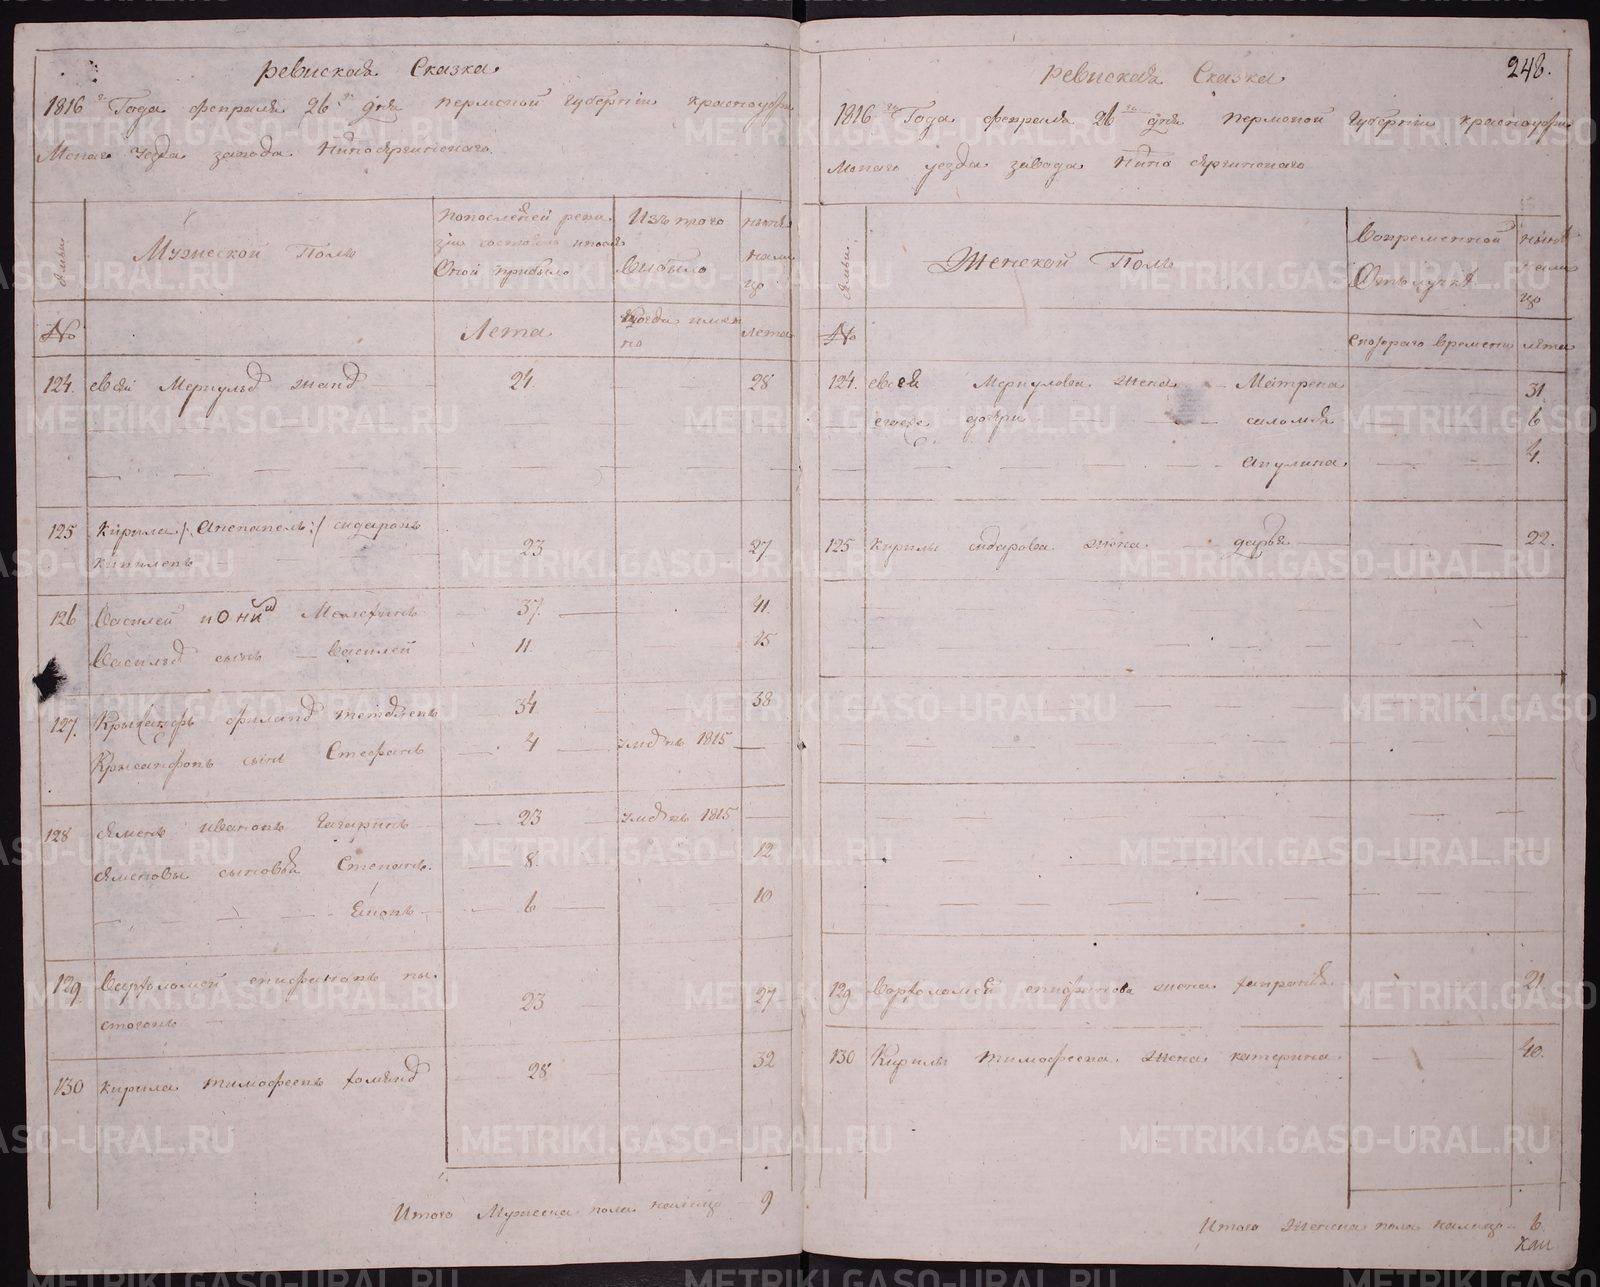 Ревиская Сказка
1816 го Года февраля 26 го дня пермской губернии красноуфи
мскаго уезда завода нижносергинскаго
Семьи
Мужеской Полъ
Попоследней реви
зии состояло ипосле
Оной прибыло
Изъ того
Выбыло
ныне
нали
цо
№
Лета
Когда имен
но
лета
124. евсей Меркулов 24. 28
125 Кирила /: Анепапелъ :/ сидаровъ
23 27
126 Василей Мелехинъ 37. 41.
Васильев сынъ Василей 11. 15
127. Крысанфъ 34 38
Крысанфовъ сынъ Стефанъ 4 умре въ 1815
128 Семенъ ивановъ Гагаринъ 23 умре въ 1815
Семеновы сыновья Степанъ. 8. 12
6 10
129. Варфоломей епифановъ пы.
стоговъ 23 27
130 Кирила тимофеевъ 28 32
Итого Мужеска пола налицо 9
248.
Ревиская Сказка
1816 го Года февраля 26 го дня пермской губернии красноуфи
мскаго уезда завода нижно сергинскаго
Семьи
Женской Полъ
Вовременной
Отлучке
ныне
нали
цо
№
Скотораго времени лета
124. евсея Меркулова жена Матрена 31.
егоже дочери саломея 6
Акулина 4.
125 Кирилы сидарова жена дарья 22.
129 Варфоломея епифанова жена хавронья 21
130 Кирилы тимофеева жена катерина 40.
Итого женска пола налицо 6